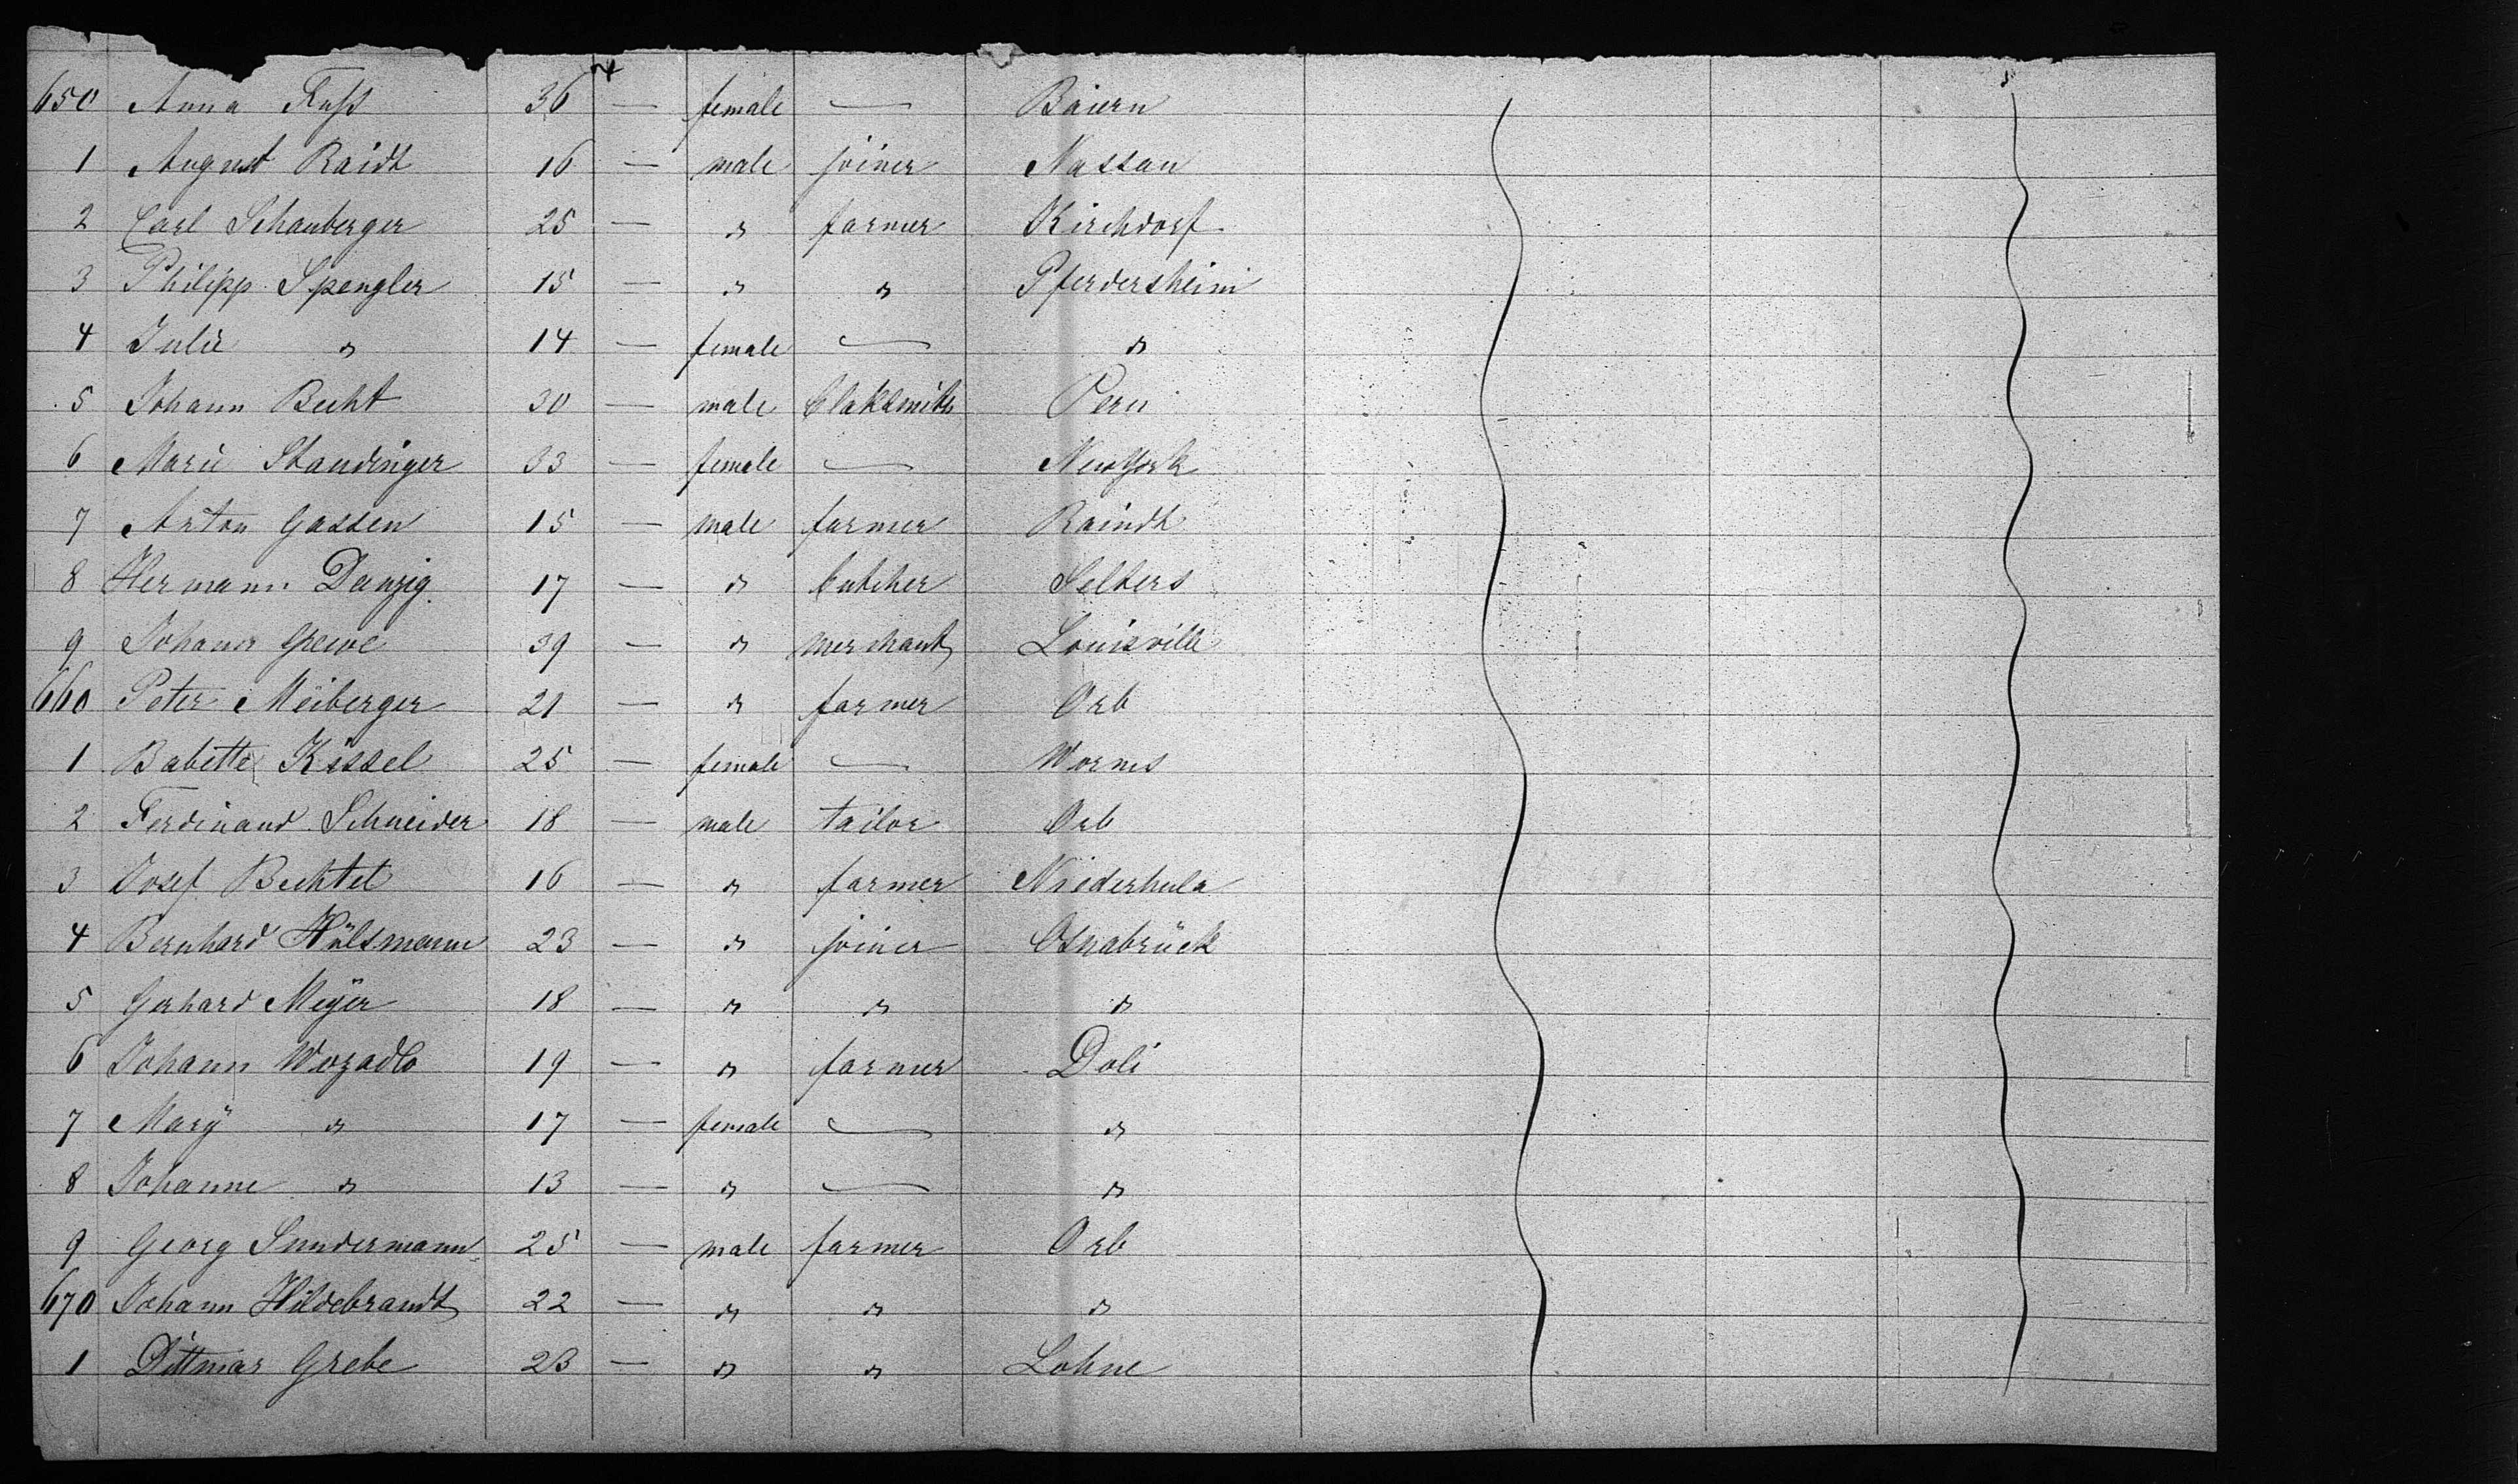 650 Anna Fuhs 36 — female — Baiern
1 August Raidt 16 — male joiner Nassau
2 Carl Schauberger 25 — " farmer Kirchdorf
3 Philipp Spengler 15 — " " Pferdersheim
4 Julie " 14 — female — "
5 Johann Becht 30 — male blaksmith Peru
6 Marie Staudinger 33 — female — New York
7 Anton Gassen 15 — male farmer Raindt
8 Hermann Danzig 17 — " butcher Selters
9 Johann Grewe 39 — " merchant Louisville
660 Peter Meiberger 21 — " farmer Orb
1 Babette Kissel 25 — female — Worms
2 Ferdinand Schneider 18 — male tailor Orb
3 Josef Bechtel 16 — " farmer Niederhula
4 Bernhard Hülsmann 23 — " joiner Osnabrück
5 Gerhard Meÿer 18 — " " "
6 Johann Wozadlo 19 — " farmer Doli
7 Marÿ " 17 — female — "
8 Johanne " 13 — " — "
9 Georg Sundermann 25 — male farmer Orb
670 Johann Hildebrandt 22 — " " "
1 Dittmar Grebe 23 — " " Lohne